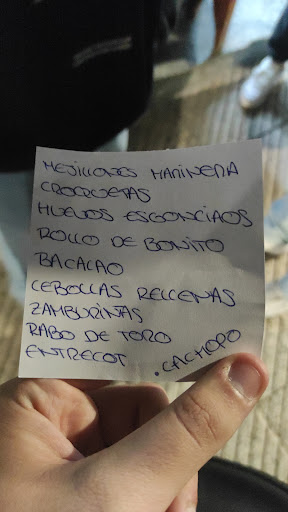 MEJILLONES MARINERA
CROQUETAS
HUEVOS ESGONCIAOS
ROLLO DE BONITO
BACALAO
CEBOLLAS RELLENAS
ZAMBURIÑAS
RABO DE TORO
ENTRECOT
.CACHOPO